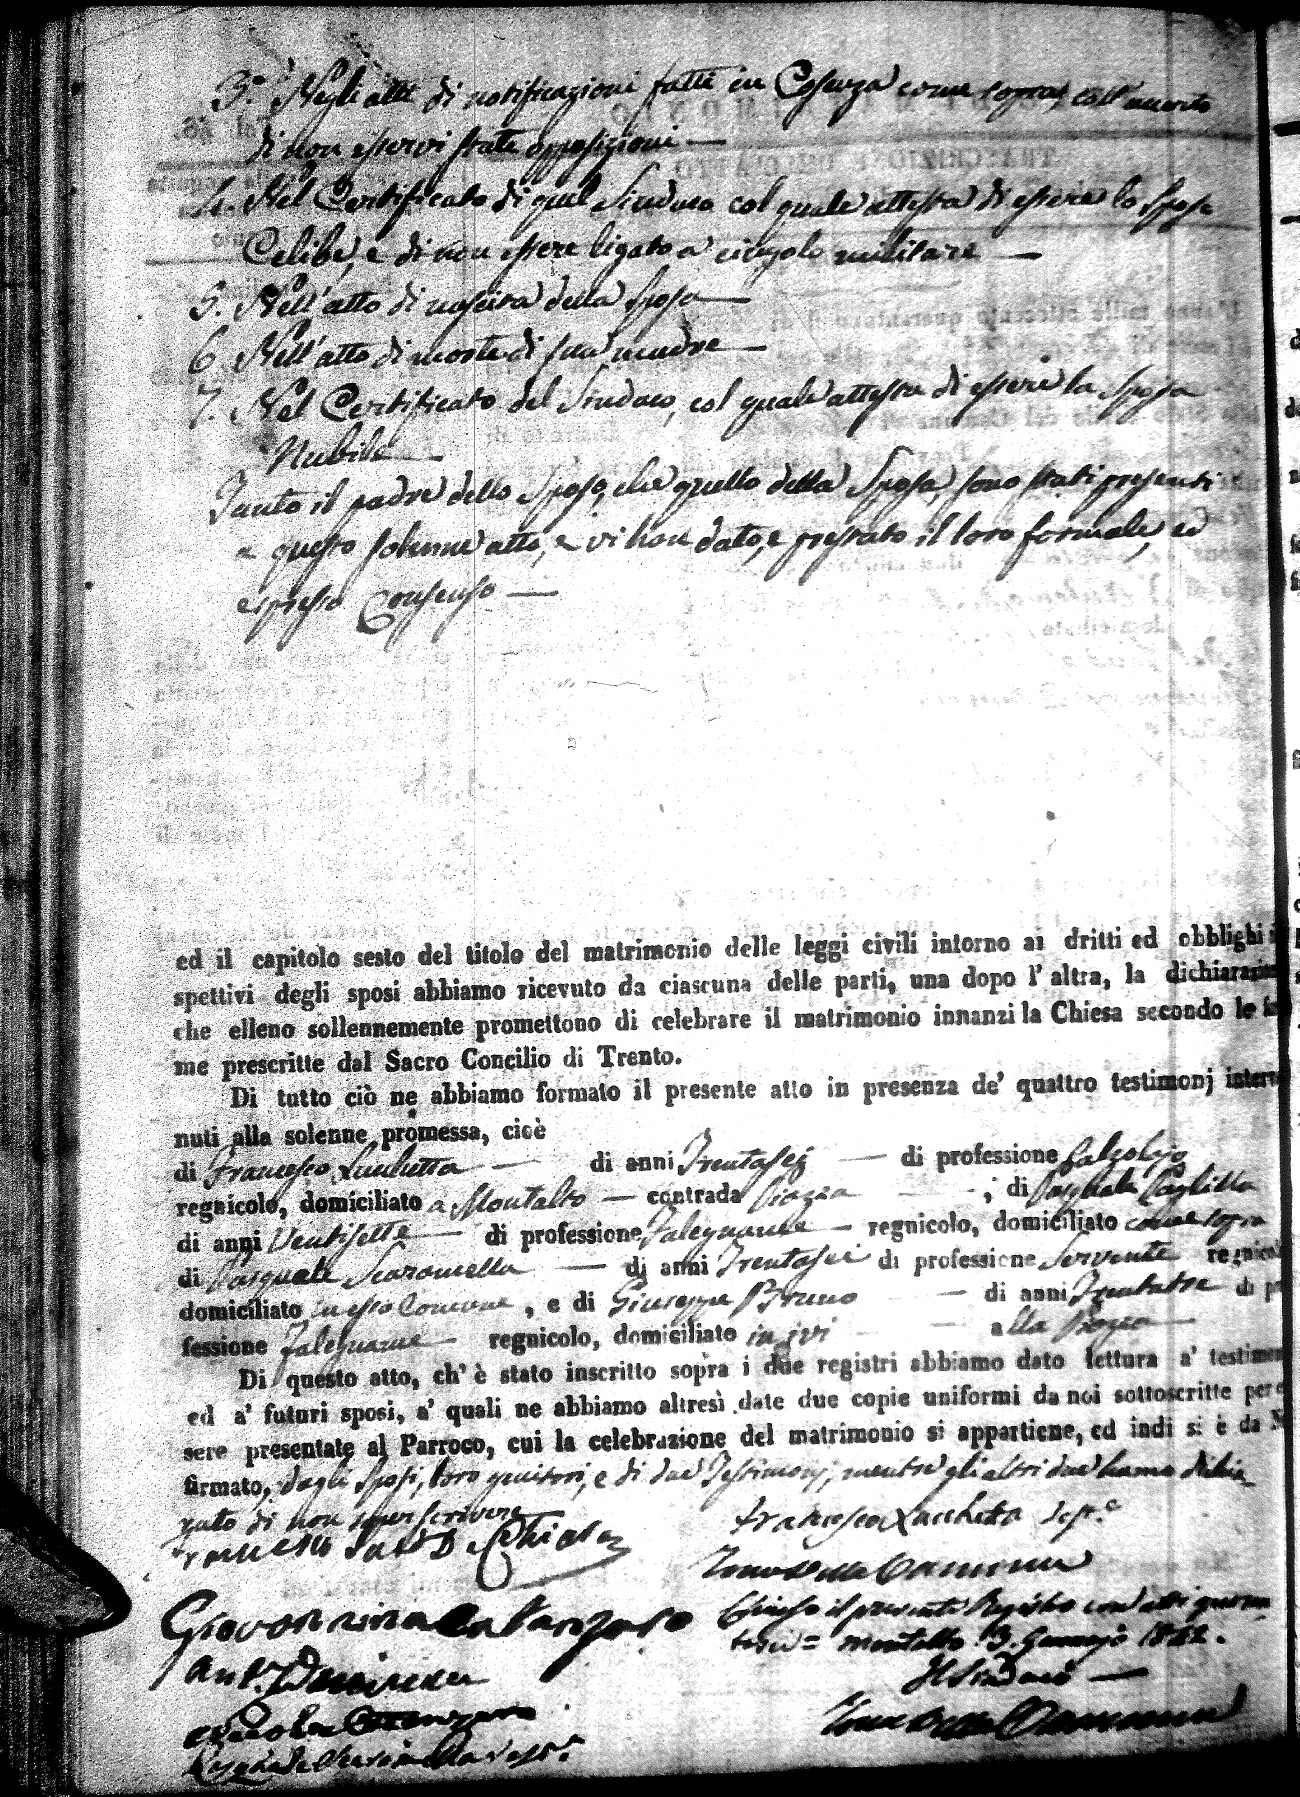 3.° Negli atti di notificazioni fatti in Cosenza come sopra, coll'
di non esservi state opposizioni —
4. Nel Certificato di quel Sindaco col quale attesta di essere lo Sposo
Celibe, e di non essere ligato a cingolo militare —
5. Nell'atto di nascita della Sposa —
6. Nell'atto di morte di sua madre —
7. Nel Certificato del Sindaco, col quale attesta di essere la Sposa
Nubile —
Tanto il padre dello Sposo, che quello della Sposa, sono stati presenti
a questo solenne atto, e vi han dato, e prestato il loro formale, ed
espresso Consenso —
ed il capitolo sesto del titolo del matrimonio delle leggi civili intorno ai dritti ed obblighi
spettivi degli sposi abbiamo ricevuto da ciascuna delle parti, una dopo l' altra, la
che elleno sollennemente promettono di celebrare il matrimonio innanzi la Chiesa secondo le
me prescritte dal Sacro Concilio di Trento.
Di tutto ciò ne abbiamo formato il presente atto in presenza de' quattro testimonj
nuti alla solenne promessa, cioè
di Francesco — di anni Trentasei — di professione Calzolajo
regnicolo, domiciliato a Montalto — contrada Piazza — , di Pasquale
di anni Ventisette — di professione Falegname — regnicolo, domiciliato come sopra
di Pasquale Scaramella — di anni Trentasei di professione Servente
domiciliato in esso Comune , e di Giuseppe Bruno — di anni Trentatre di
fessione Falegname — regnicolo, domiciliato in ivi — alla Piazza —
Di questo atto, ch' è stato inscritto sopra i due registri abbiamo dato lettura a'
ed a' futuri sposi, a' quali ne abbiamo altresì date due copie uniformi da noi sottoscritte per
sere presentate al Parroco, cui la celebrazione del matrimonio si appartiene, ed indi si è da
firmato, dagli Sposi, loro genitori, e di due Testimonj, mentre gli altri due hanno
di non
Francesco
De Chiara
Giovannina Catanzaro
Chiuso il presente Registro con atti
Montalto 3. Gennajo 1842.
Il Sindaco —
Nicola Catanzaro